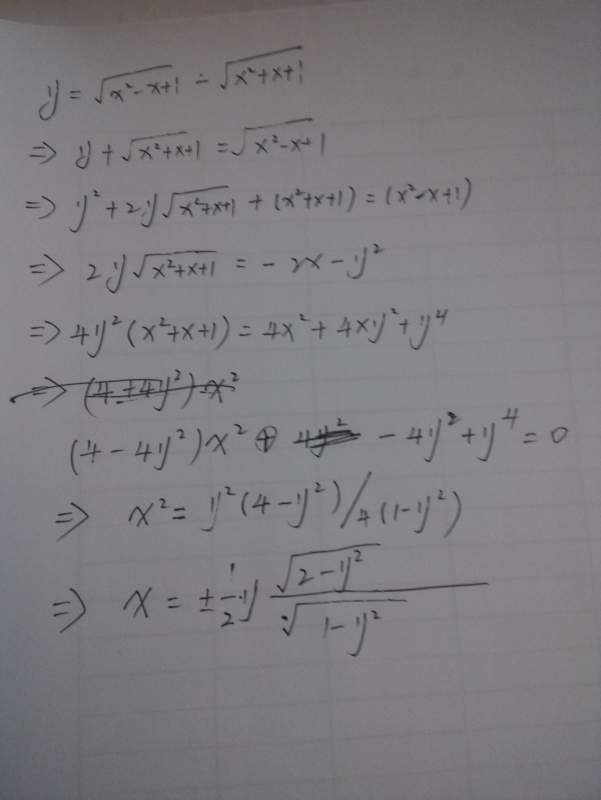 y = √(x²-x+1) - √(x²+x+1)
⇒ y + √(x²+x+1) = √(x²-x+1)
⇒ y² + 2y√(x²+x+1) + (x²+x+1) = (x²-x+1)
⇒ 2y√(x²+x+1) = -2x - y²
⇒ 4y²(x²+x+1) = 4x² + 4xy² + y⁴
⇒ (4+4y²)x²
(4-4y²)x² + 4y² - 4y² + y⁴ = 0
⇒ x² = y²(4-y²)/4(1-y²)
⇒ x = ± 1/2 y √(2-y²)/√(1-y²)